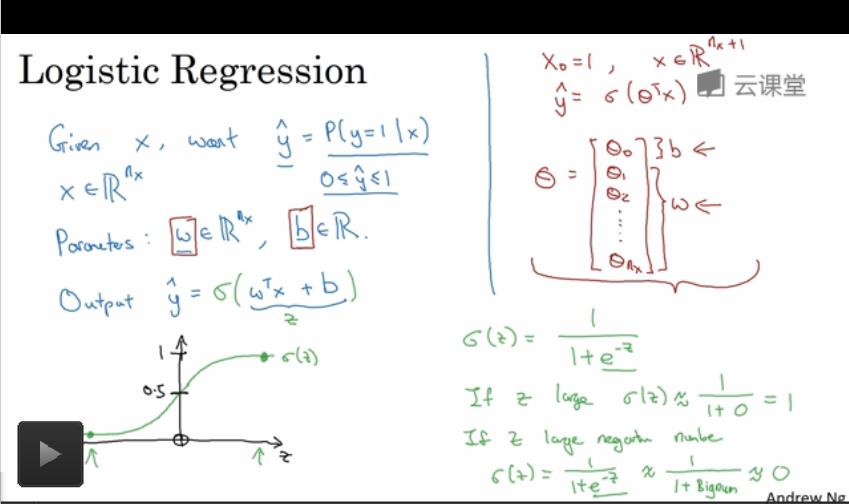 Logistic Regression
Given x, want ŷ = P(y=1|x)
x ∈ ℝ^{n_x}
0 ≤ ŷ ≤ 1
Parameters: w ∈ ℝ^{n_x}, b ∈ ℝ.
Output ŷ = σ(w^T x + b)
z
1
σ(z)
0.5
0
z
x_0 = 1, x ∈ ℝ^{n_x+1}
ŷ = σ(θ^T x)
云课堂
θ = [θ_0 θ_1 θ_2 ⋮ θ_{n_x}]
} b ←
} w ←
σ(z) = 1 / (1 + e^{-z})
If z large σ(z) ≈ 1 / (1 + 0) = 1
If z large negative number
σ(z) = 1 / (1 + e^{-z}) ≈ 1 / (1 + Bignum) ≈ 0
Andrew Ng